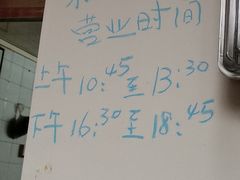 营业时间
上午10:45至13:30
下午16:30至18:45